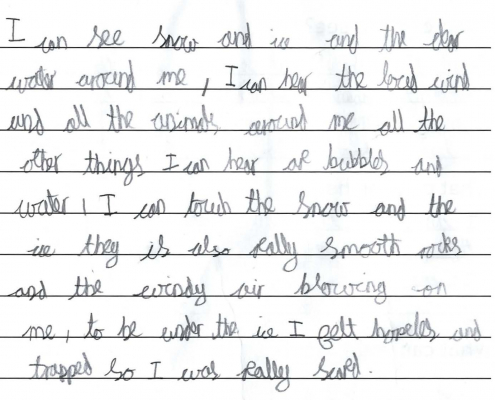 I can see snow and ice and the clear
water around me, I can hear the loud wind
and all the animals around me all the
other things I can hear are bubbles and
water, I can touch the snow and the
ice they is also really smooth rocks
and the windy air blowing on
me, to be under the ice I felt hopeles and
trapped so I was really scared.